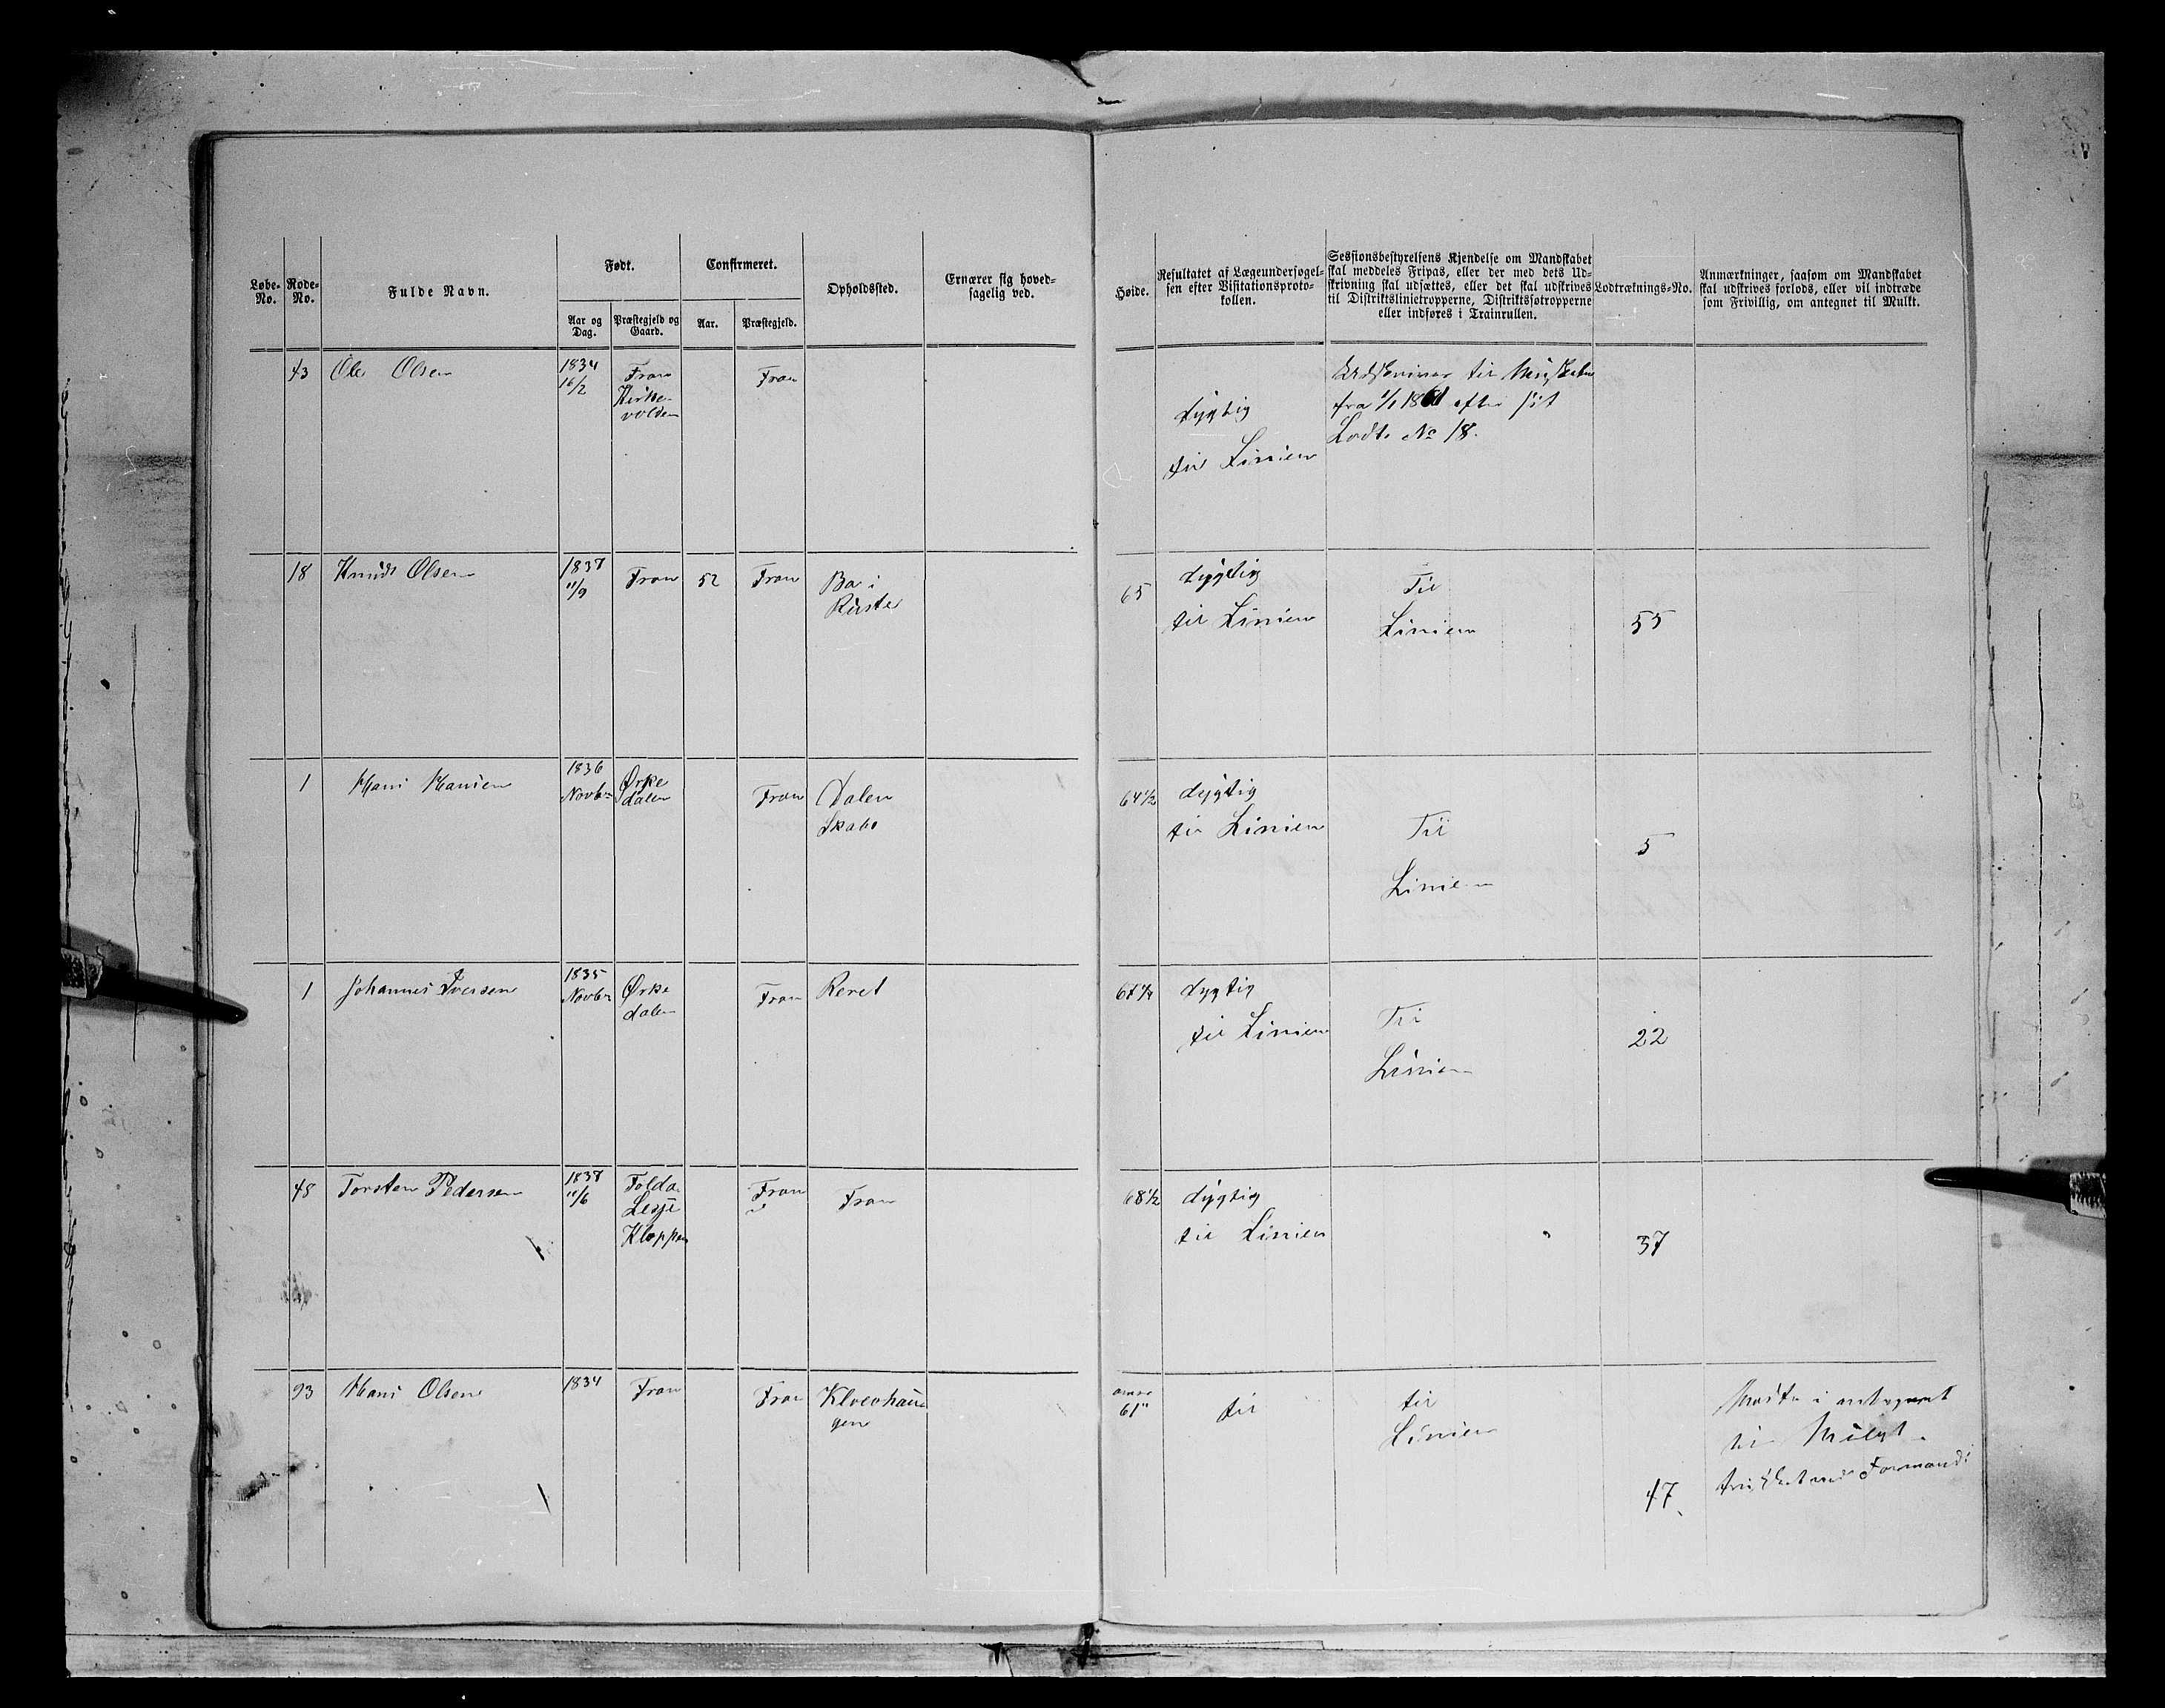 Løbe-No.
Rode-No.
Fulde Navn.
Født.
Aar og Dag.
Præstegjeld og Gaard.
Confirmeret.
Aar.
Præstegjeld.
Opholdssted.
Ernærer sig hoved-
sagelig ved.
Høide.
Resultatet af Lægeundersøgel-
sen efter Visitationsproto-
kollen.
Sessionsbestyrelsens Kjendelse om Mandskabet
skal meddeles Fripas, eller der med dets Ud-
skrivning skal udsættes, eller det skal udskrives
til Distriktslinietropperne, Distriktsføtropperne
eller indføres i Trainrullen.
Lodtræknings-No.
Anmærkninger, saasom om Mandskabet
skal udskrives forlods, eller vil indtræde
som Frivillig, om antegnet til Mulkt.
43 Ole Olsen 1834 Fron Fron
16/2 Kirke-
volden
dygtig
til Linien
fra 1/1 1861 efter sit
Lodts No 18.
18 Knud Olsen 1837 Fron 52 Fron Bø i
11/9 Ruste
65 dygtig Til
til Linien Linien 55
1 Hans Hansen 1836 Ørke Fron Dalen
Novbr dalen Skabo
64 1/2 dygtig Til
til Linien Linien 5
1 Johannes Iversen 1835 Ørke Fron Reret
Novbr dalen
dygtig Til
til Linien Linien 22
45 Torsten Pedersen 1837 Fron Fron
11/6 Lesje
Kloppen
68 1/2 dygtig
til Linien 37
93 Hans Olsen 1834 Fron Fron Kloevhau
gen
61" til til
Linien
47
til Mulkt